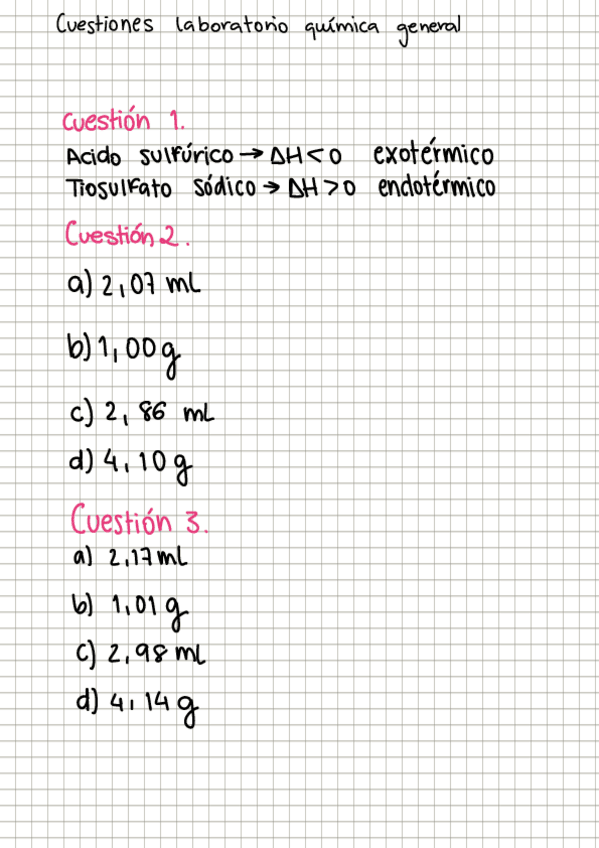 Cuestiones laboratorio química general
Cuestión 1.
Acido sulfúrico → ΔH < 0 exotérmico
Tiosulfato sódico → ΔH > 0 endotérmico
Cuestión 2.
a) 2,07 mL
b) 1,00 g
c) 2,86 mL
d) 4,10 g
Cuestión 3.
a) 2,17 mL
b) 1,01 g
c) 2,98 mL
d) 4,14 g